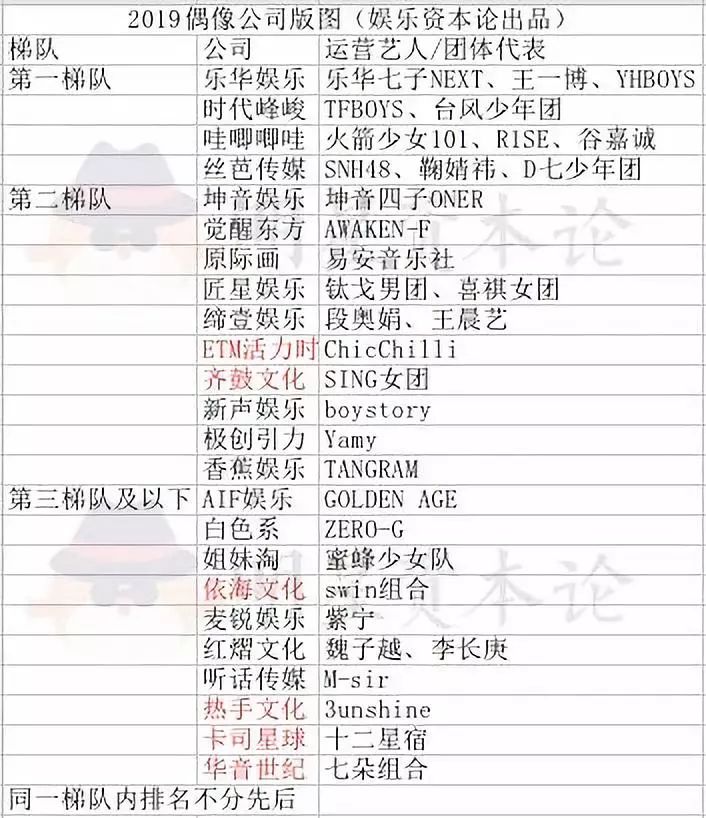 2019偶像公司版图（娱乐资本论出品）
梯队 公司 运营艺人/团体代表
第一梯队 乐华娱乐 乐华七子NEXT、王一博、YHBOYS
时代峰峻 TFBOYS、台风少年团
哇唧唧哇 火箭少女101、R1SE、谷嘉诚
丝芭传媒 SNH48、鞠婧祎、D七少年团
第二梯队 坤音娱乐 坤音四子ONER
觉醒东方 AWAKEN-F
原际画 易安音乐社
匠星娱乐 钛戈男团、喜祺女团
缔壹娱乐 段奥娟、王晨艺
ETM活力时 ChicChilli
齐鼓文化 SING女团
新声娱乐 boystory
极创引力 Yamy
香蕉娱乐 TANGRAM
第三梯队及以下 AIF娱乐 GOLDEN AGE
白色系 ZERO-G
姐妹淘 蜜蜂少女队
依海文化 swin组合
麦锐娱乐 紫宁
红熠文化 魏子越、李长庚
听话传媒 M-sir
热手文化 3unshine
卡司星球 十二星宿
华音世纪 七朵组合
同一梯队内排名不分先后